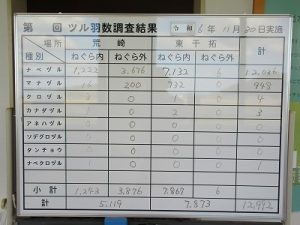 第 回 ツル羽数調査結果 令和 6年 11月 30日実施
場所 荒崎 東干拓 計
種別 ねぐら内 ねぐら外 ねぐら内 ねぐら外
ナベヅル 1,222 3,676 7,132 6 12,036
マナヅル 16 200 732 0 948
クロヅル 0 1 0 4
カナダヅル 2 0 3
アネハヅル 0 0 0 0
ソデグロヅル 0 0 0 0 0
タンチョウ 0 0 0 0 0
ナベクロヅル 0 0 0 1
小計 1,243 3,876 7,867 6
計 5,119 7,873 12,992